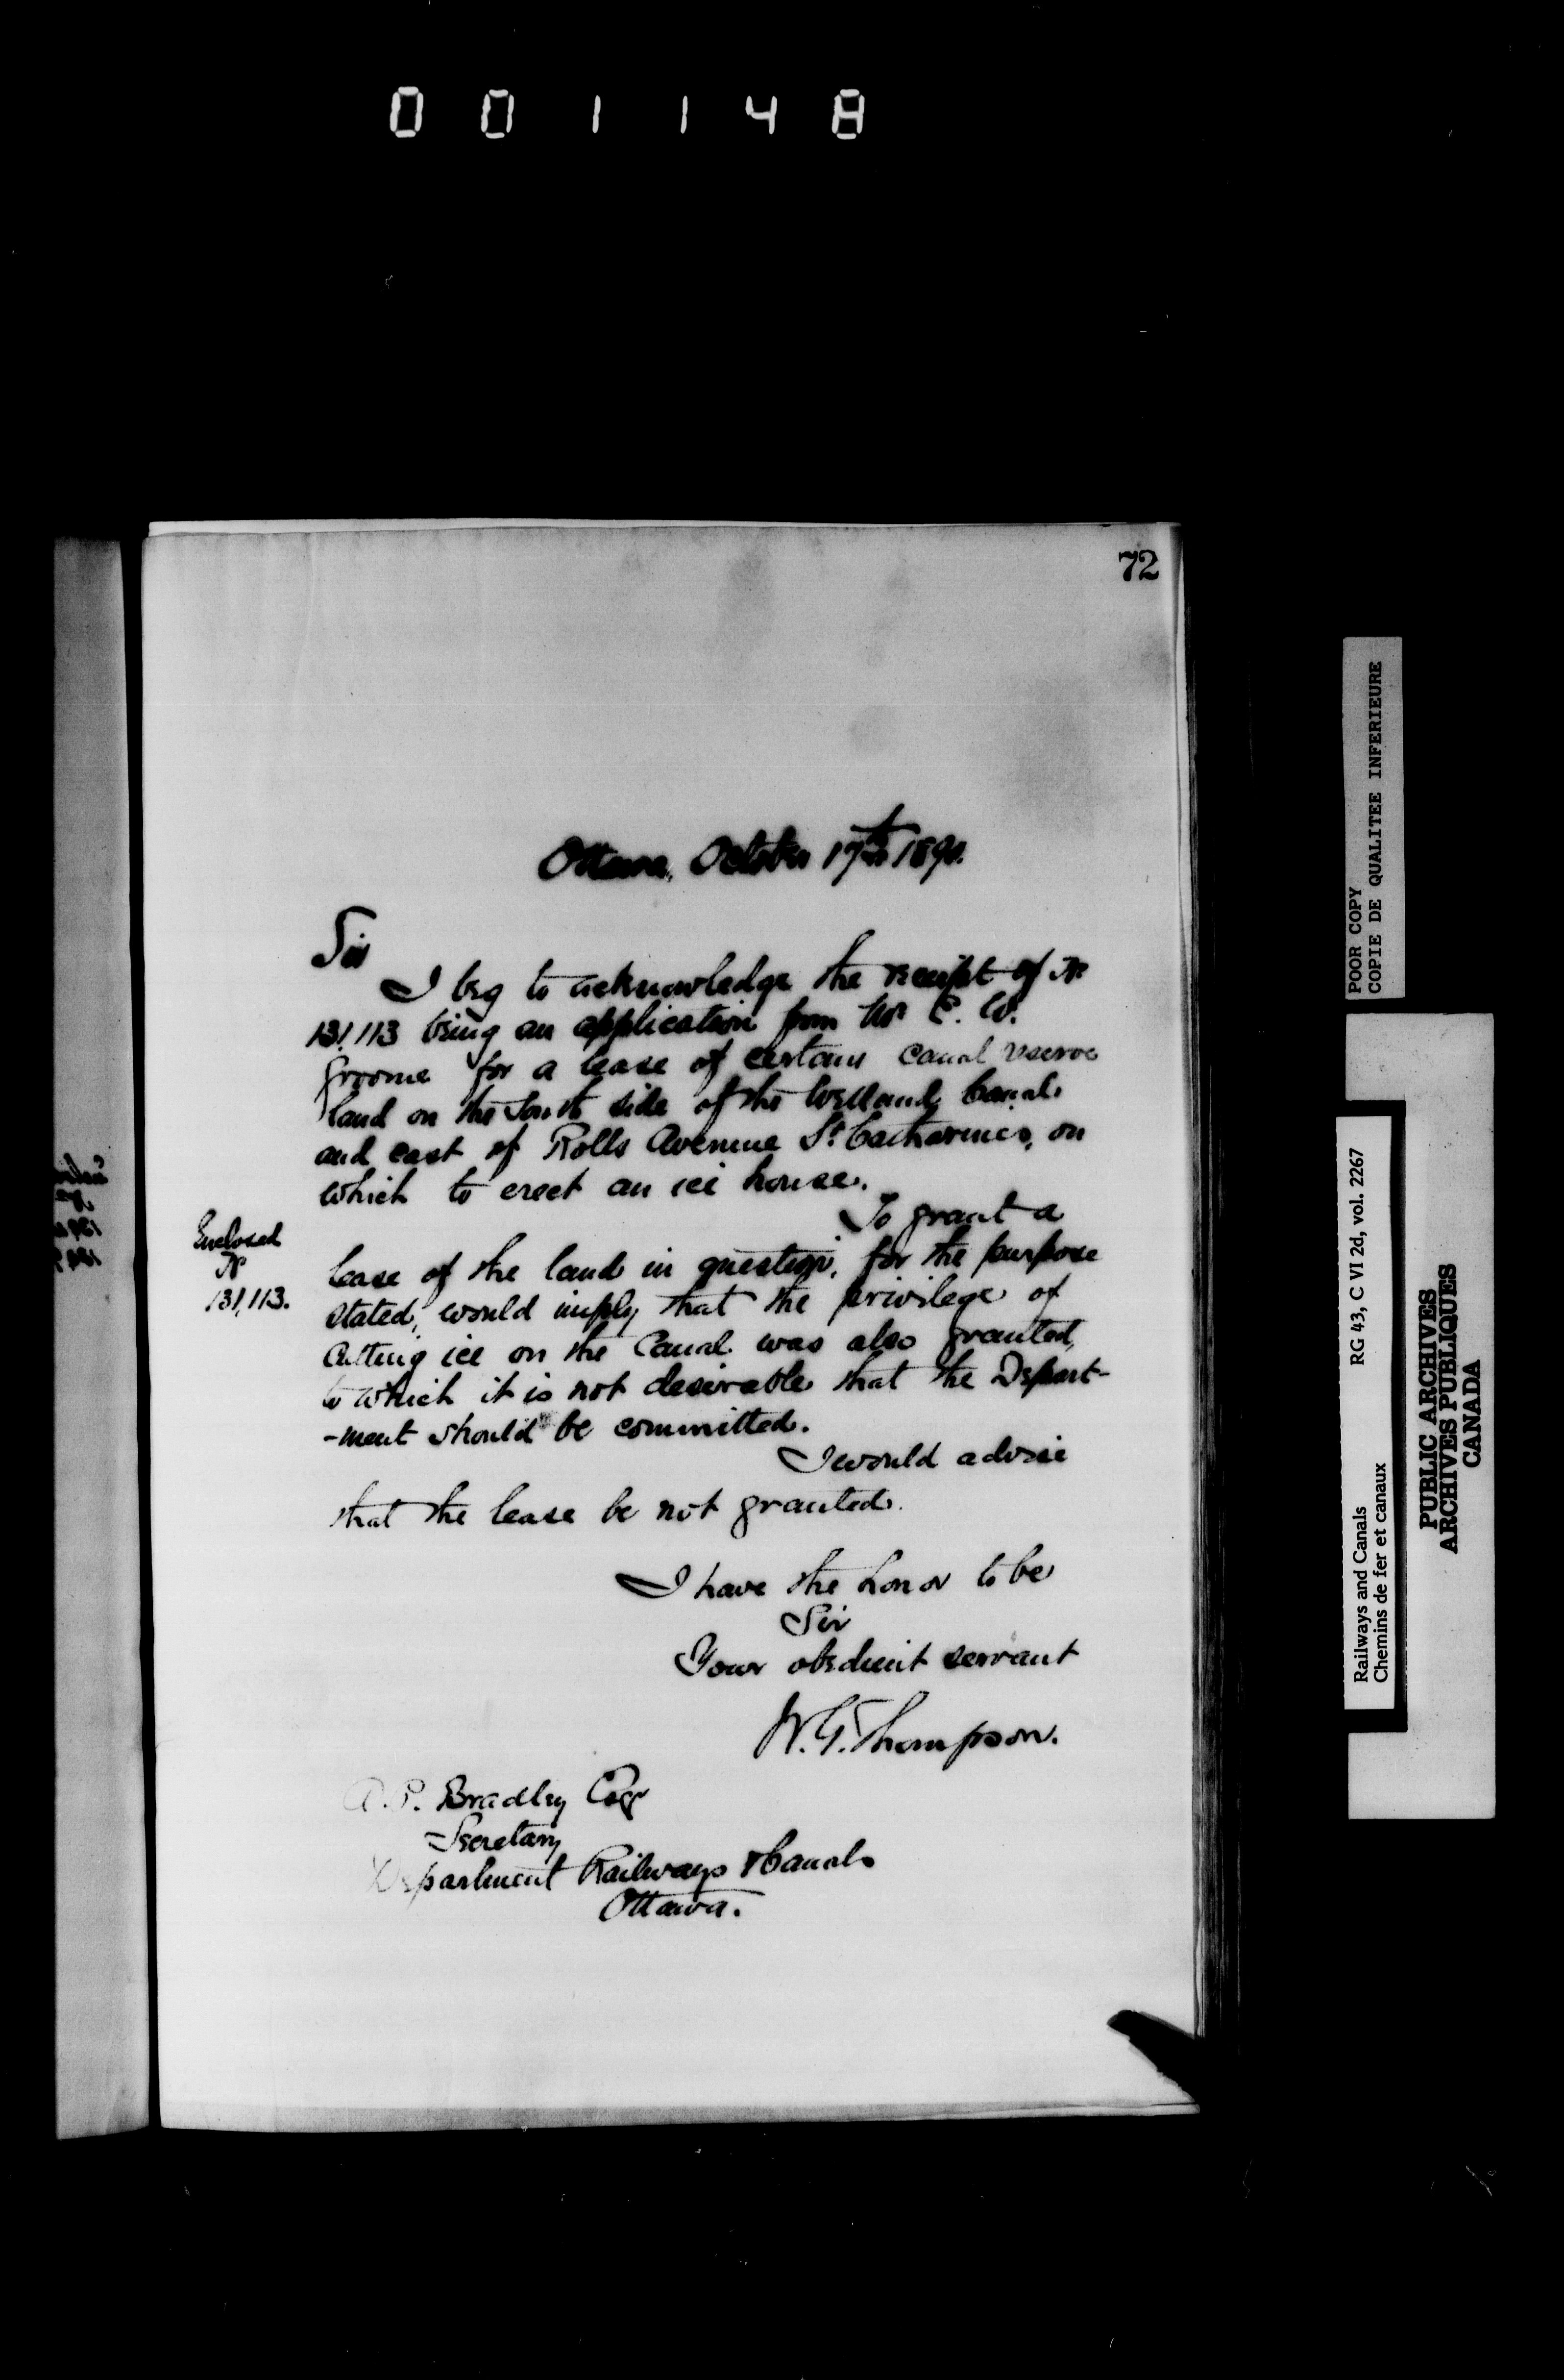 001148
72
Ottawa, October 17th 1891.
Sir
I beg to acknowledge the receipt of No
131,113 being an application from Mr C. W.
Groome for a lease of certain canal reserve
land on the South side of the Welland Canal
and east of Rolls Avenue St Catharines, on
which to erect an ice house.
To grant a
Enclosed
No
131,113.
lease of the land in question, for the purpose
stated, would imply that the privilege of
cutting ice on the Canal was also granted,
to which it is not desirable that the Depart-
-ment should be committed.
I would advise
that the lease be not granted.
I have the honor to be
Sir
Your obedient servant
W. G. Thompson.
A. P. Bradley Esqr
Secretary
Department Railways & Canals
Ottawa.
POOR COPY
COPIE DE QUALITEE INFERIEURE
Railways and Canals RG 43, C VI 2d, vol. 2267
Chemins de fer et canaux
PUBLIC ARCHIVES
ARCHIVES PUBLIQUES
CANADA